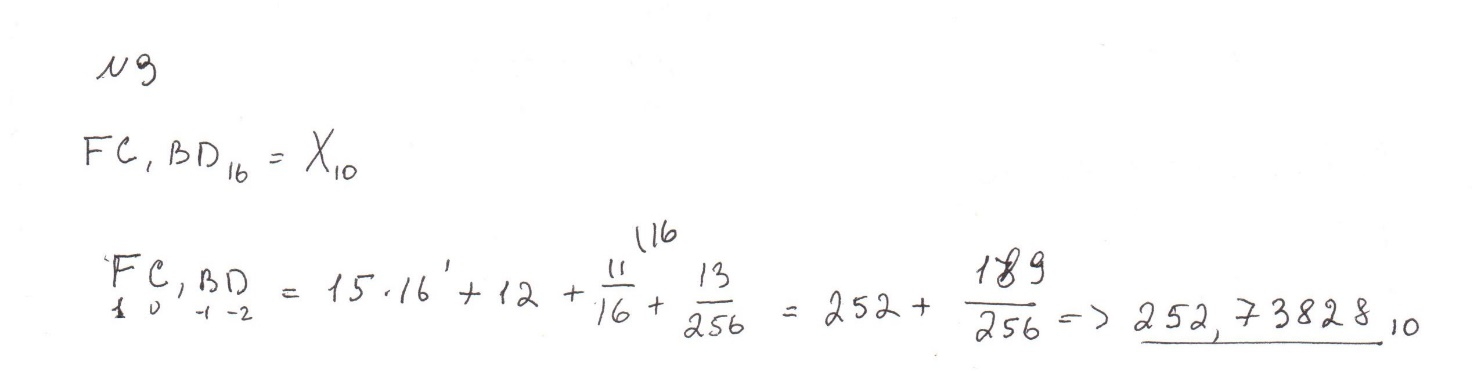 №9
FC, BD₁₆ = X₁₀
FC, BD = 15·16¹ + 12 + 11/16 + 13/256 = 252 + 189/256 => 252,73828₁₀
1 0 -1 -2